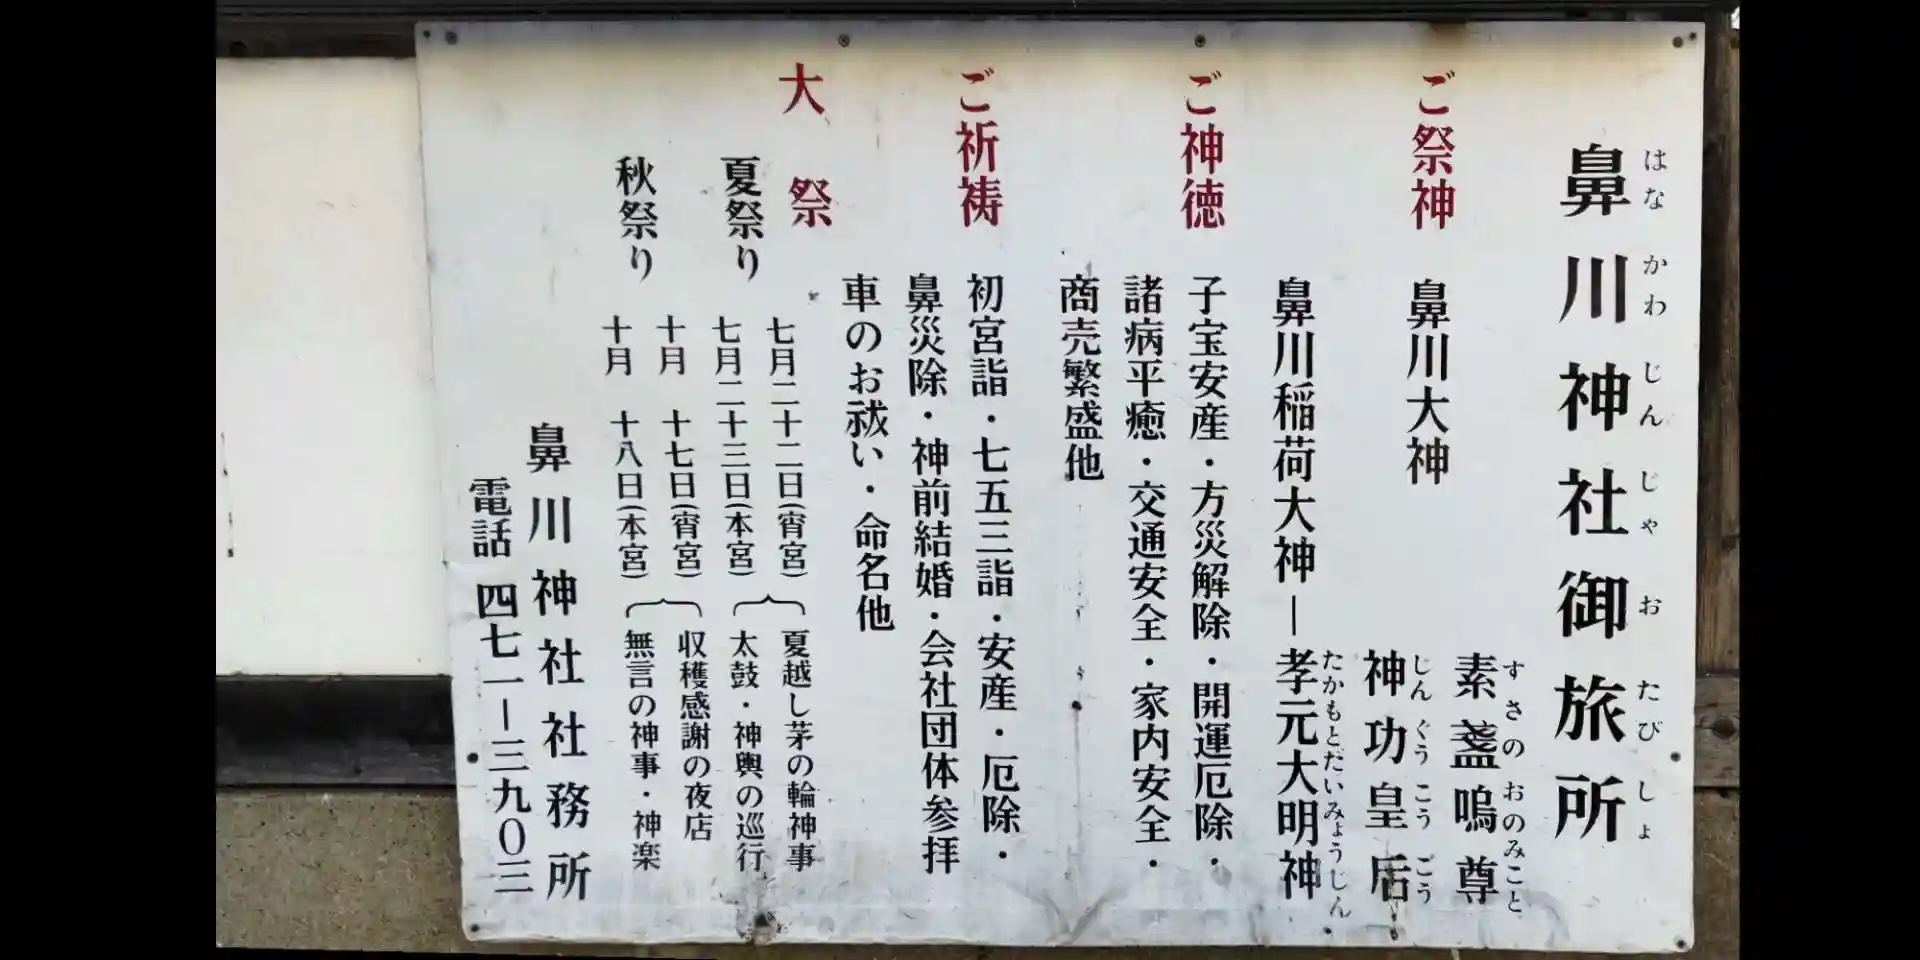 鼻川神社御旅所
はなかわじんじゃおたびしょ
ご祭神
鼻川大神
素盞嗚尊
すさのおのみこと
神功皇后
じんぐうこうごう
鼻川稲荷大神ー孝元大明神
たかもとだいみょうじん
ご神徳
子宝安産・方災解除・開運厄除・
諸病平癒・交通安全・家内安全・
商売繁盛他
ご祈祷
初宮詣・七五三詣・安産・厄除・
鼻災除・神前結婚・会社団体参拝
車のお祓い・命名他
大祭
夏祭り
七月二十二日(宵宮)
七月二十三日(本宮)
夏越し茅の輪神事
太鼓・神輿の巡行
秋祭り
十月 十七日(宵宮)
十月 十八日(本宮)
収穫感謝の夜店
無言の神事・神楽
鼻川神社社務所
電話 四七一ー三九〇三